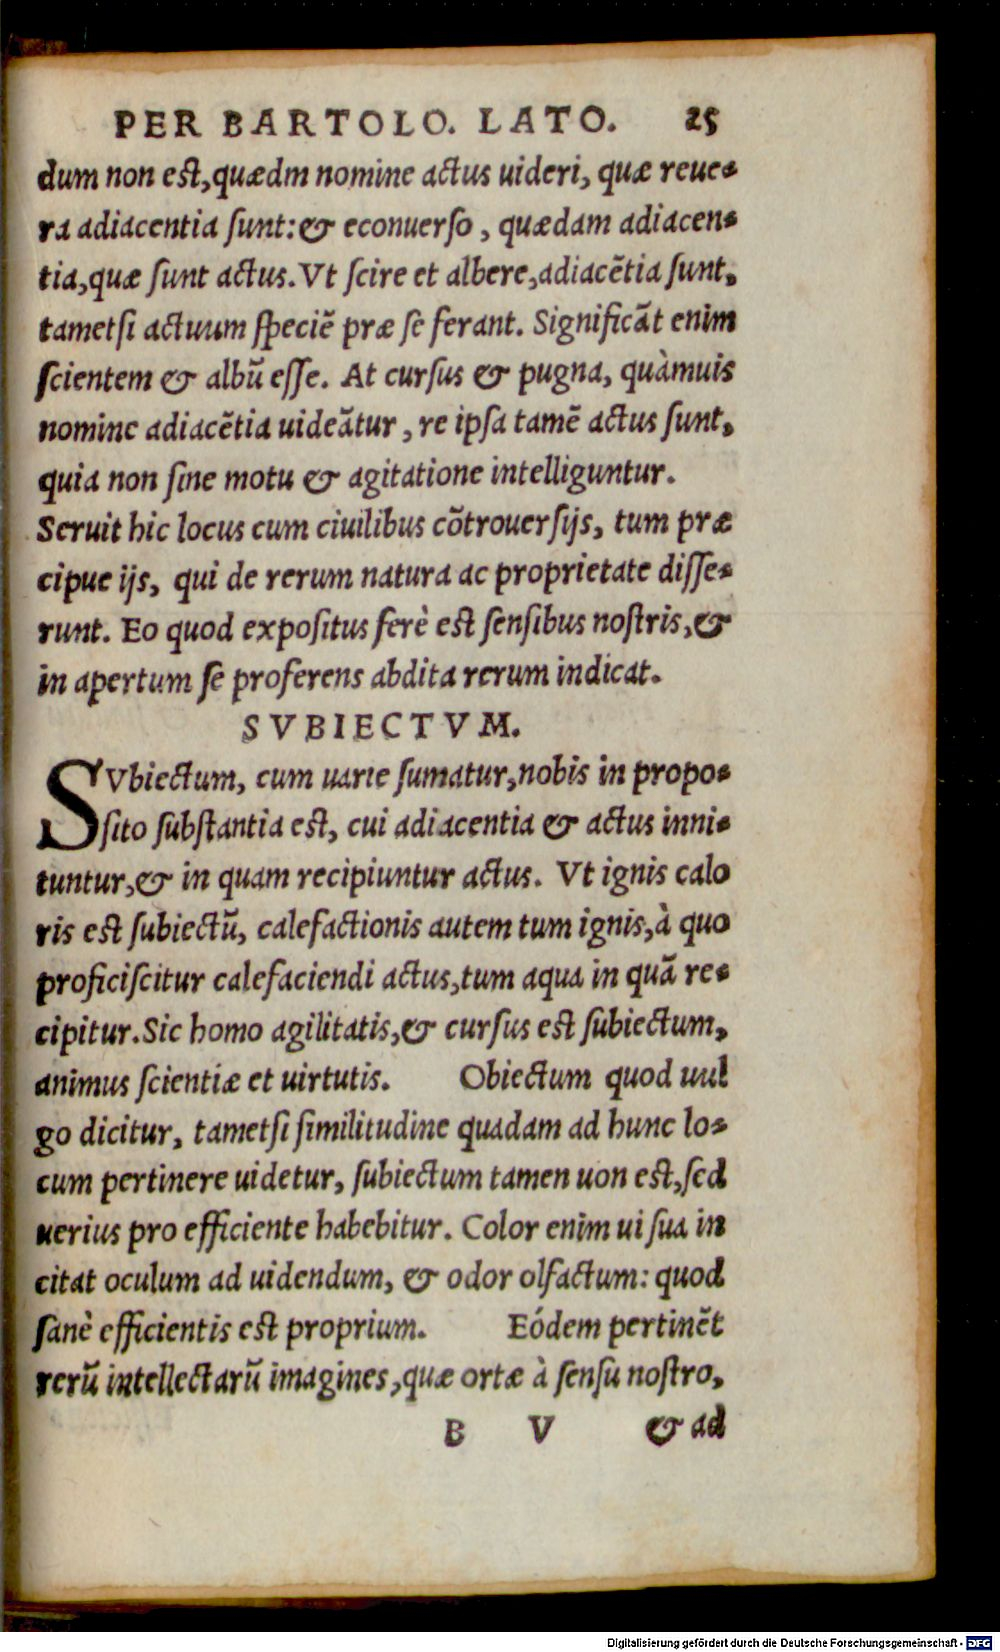 PER BARTOLO. LATO. 25
dum non est, quædm nomine actus uideri, quæ reue-
ra adiacentia sunt: & econuerso, quædam adiacen-
tia, quæ sunt actus. Vt scire et albere, adiacẽtia sunt,
tametsi actuum speciẽ præ se ferant. Significãt enim
scientem & albũ esse. At cursus & pugna, quàmuis
nomine adiacẽtia uideãtur, re ipsa tamẽ actus sunt,
quia non sine motu & agitatione intelliguntur.
Seruit hic locus cum ciuilibus cõtrouersijs, tum præ
cipue ijs, qui de rerum natura ac proprietate disse-
runt. Eo quod expositus ferè est sensibus nostris, &
in apertum se proferens abdita rerum indicat.
SVBIECTVM.
SVbiectum, cum uarie sumatur, nobis in propo-
sito substantia est, cui adiacentia & actus inni-
tuntur, & in quam recipiuntur actus. Vt ignis calo
ris est subiectũ, calefactionis autem tum ignis, à quo
proficiscitur calefaciendi actus, tum aqua in quã re-
cipitur. Sic homo agilitatis, & cursus est subiectum,
animus scientiæ et uirtutis. Obiectum quod uul
go dicitur, tametsi similitudine quadam ad hunc lo-
cum pertinere uidetur, subiectum tamen uon est, sed
uerius pro efficiente habebitur. Color enim ui sua in
citat oculum ad uidendum, & odor olfactum: quod
sanè efficientis est proprium. Eódem pertinẽt
rerũ intellectarũ imagines, quæ ortæ à sensu nostro,
B V & ad
Digitalisierung gefördert durch die Deutsche Forschungsgemeinschaft - DFG